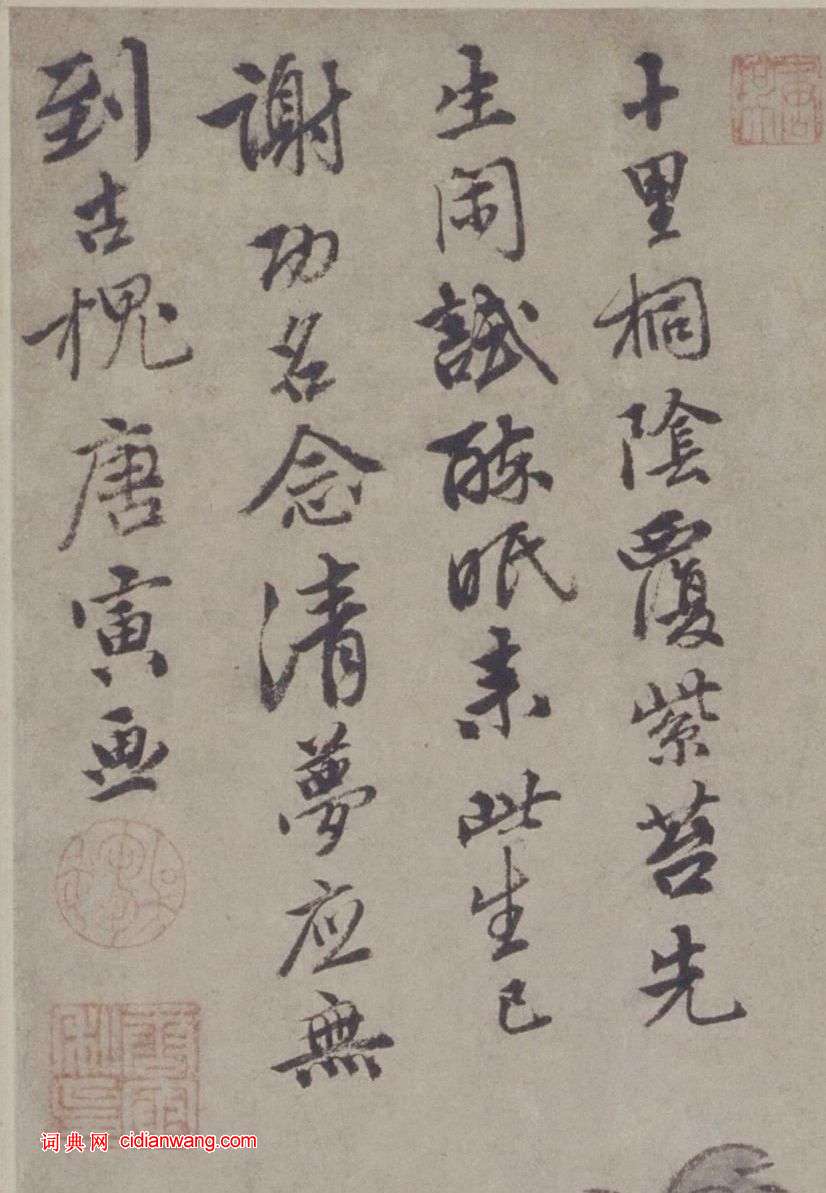 十里桐陰覆紫苔先
生閑試醉眠來此生已
謝功名念清夢應無
到古槐唐寅画
词典网 cidianwang.com